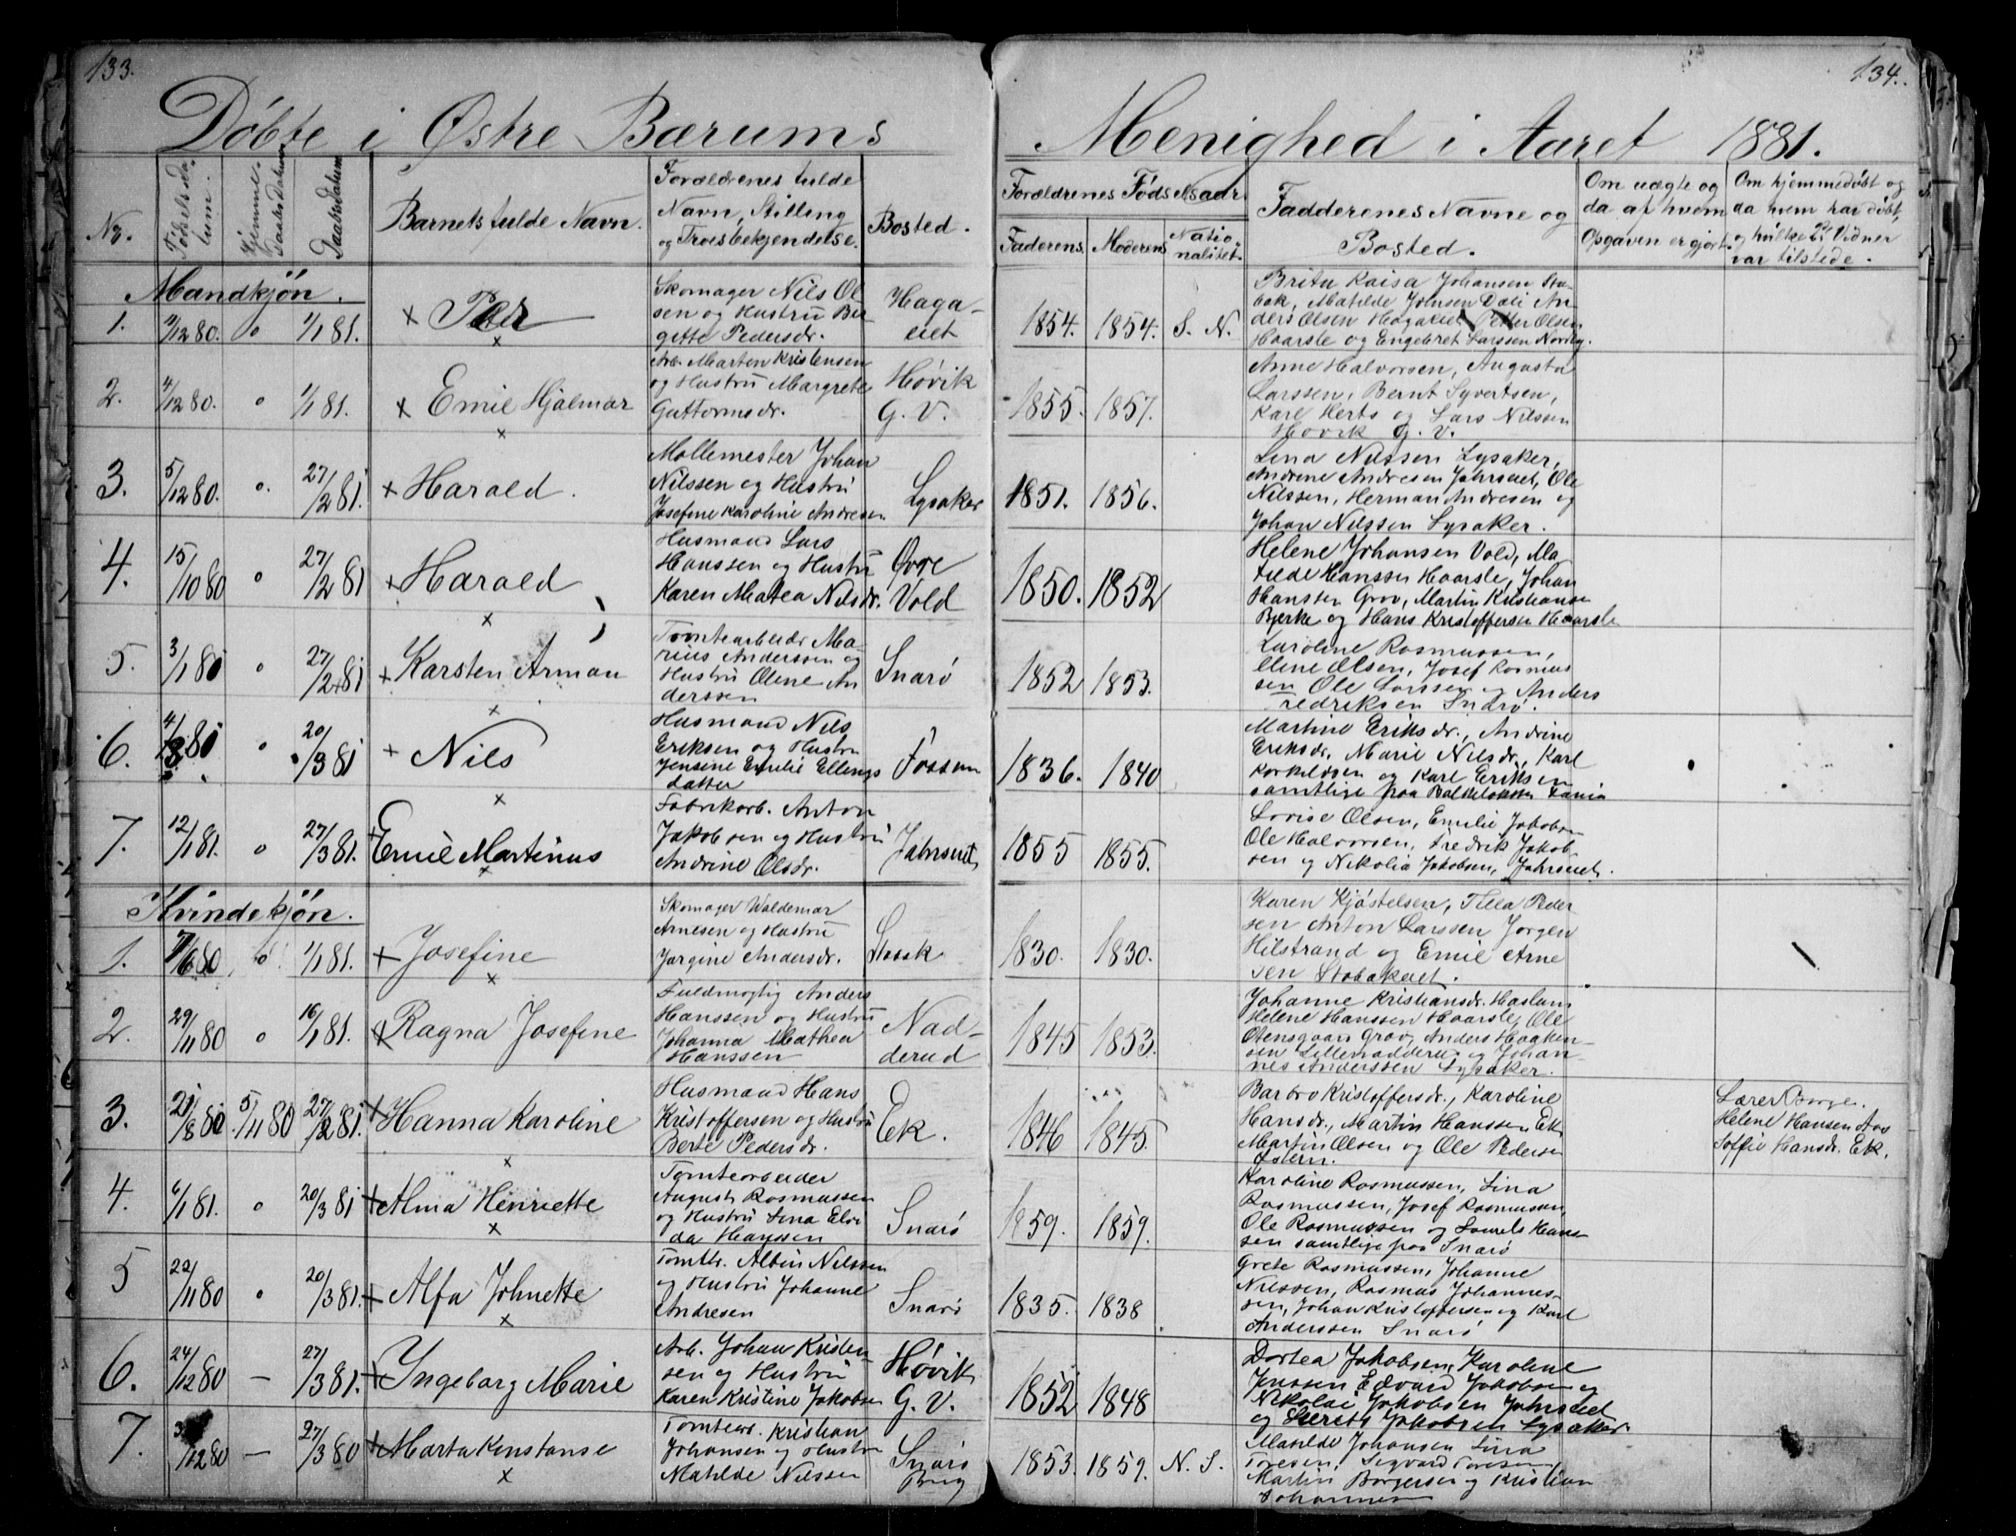 133.
134.
Døbte i Østre Bærums Menighed i Aaret 1881.
No.
Fødselsdatum.
Hjemmedaabsdatum
Daabsdatum
Barnets fulde Navn.
Forældrenes fulde
Navn, Stilling
og Troesbekjendelse.
Bosted.
Forældrenes Fødselsaar
Faderens.
Moderens
Nationalitet.
Fadderenes Navne og
Bosted.
Om uægte og
da af hvem
Opgaven er gjort.
Om hjemmedøbt og
da hvem har døbt,
og hvilke Vidner
var tilstede.
Mandkjøn.
1.
/12 80.
o
1/1 81.
+ Peter
Skomager Nils Ol
sen og Hustru Ber
gitte Pedersdr.
Haga-
eiet
1854.
1854.
S. N.
Brita Kaisa Johansen Sta-
bæk, Matilde Johnsen Dæli An-
ders Olsen Hagaeiet Petter Olsen
Haarsle og Engebret Larssen Nordby.
2.
4/12 80.
o
1/1 81.
+ Emil Hjalmar
Arb. Marten Kristensen
og Hustru Margrete
Guttormsdr.
Høvik
G. V.
1855.
1857.
Anne Halvorsen, Augusta
Larssen, Bernt Syvertsen,
Karl Herts og Lars Nilssen
Høvik G. V.
3.
5/12 80.
o.
27/2 81.
+ Harald.
Møllemester Johan
Nilssen og Hustru
Josefine Karoline Andresen
Lysaker
1851.
1856.
Lina Nilssen Lysaker,
Andrine Andresen Jahrseiet, Ole
Nilssen, Herman Andresen og
Johan Nilssen Lysaker.
4.
15/10 80
o
27/2 81
+ Harald
Husmand Lars
Hanssen og Hustru
Karen Matea Nilsdr.
Øvre
Vold
1850.
1852
Helene Johansen Vold, Ma-
tilde Hanssen Haarsle, Johan
Hanssen Grav, Martin Kristiansen
Bjerke og Hans Kristoffersen Haarsle
5.
3/1 80
o
27/2 81
+ Karsten Arman
Tomtearbeider Ma-
rius Anderssen og
Hustru Oline An
derssen
Snarø
1852
1853.
Karoline Rasmussen,
Oline Olsen, Josef Rasmus
sen Ole Larssen og Anders
Fredriksen Snarø.
6.
80
o
20/3 81
+ Nils
Husmand Nils
Eriksen og Hustru
Jensine Emilie Ellings
datter
Fossum
1836.
1840
Martine Eriksdr., Andrine
Eriksdr. Marie Nilsdr., Karl
Torkildsen og Karl Eriksen
samtlige paa
7.
12/1 81.
o
27/3 81.
+ Emil Martinus
Fabrikarb. Anton
Jakobsen og Hustru
Andrine Olsdr.
Jahrseiet
1855
1855.
Lovise Olsen, Emilie Jakobsen
Ole Halvorsen, Fredrik Jakob
sen og Nikolia Jakobsen, Jahrseiet.
Kvindekjøn.
1.
7/6 80
o
1/1 81.
+ Josefine
Skomager Waldemar
Arnesen og Hustru
Jørgine Andersdr.
1830.
1830.
Karen Kjøstelsen, Tilla Peder
sen Anton Larssen Jørgen
Hilstrand og Emil Arne
sen Stabækeiet.
2.
29/11 80
o
16/1 81.
+ Ragna Josefine
Fuldmægtig Anders
Hanssen og Hustru
Johanna Mathea
Hanssen
Nad-
derud
1845
1853.
Johanne Kristiansdr. Haslum
Helene Hanssen Haarsle, Ole
Otensgaard Grav, Anders Haaken-
sen Lillenadderud og Johan-
nes Anderssen Lysaker.
3.
21/8 80
5/11 80
27/2 81.
+ Hanna Karoline
Husmand Hans
Kristoffersen og Hustru
Berte Pedersdr.
Ek.
1846
1845.
Barbro Kristoffersdr., Karoline
Hansdr., Martin Hanssen Ek
Martin Olsen og Ole Pedersen
Østern.
Lærer Borge.
Helene Hansen Aas
Soffie Hansdr. Ek.
4.
6/1 81.
o
20/3 81
+ Alma Henriette
Tomtearbeider
August Rasmussen
og Hustru Lina Elvi
da Hanssen
Snarø
1859.
1859.
Karoline Rasmussen, Lina
Rasmussen, Josef Rasmussen
Ole Rasmussen og Laurets Hans
sen samtlige paa Snarø
5
22/11 80
o
20/3 81.
+ Alfa Johnette
Tomtbr. Albin Nilssen
og Hustru Johanne
Andresen
Snarø
1835.
1838
Grete Rasmussen, Johanne
Nilssen, Rasmus Johannes-
sen, Johan Kristoffersen og Karl
Anderssen Snarø
6.
24/12 80
—
27/3 81.
+ Ingeborg Marie
Arb. Johan Kristen-
sen og Hustru
Karen Kristine Jakobsen
Høvik
G. V.
1852
1848
Dortea Jakobsen, Karoline
Jenssen Edvard Jakobsen og
Nikolai Jakobsen Jahrseiet
og Jakobsen Lysaker.
7.
/12 80
—
27/3 80
+ Marta Konstanse
Tomtearb. Kristian
Johansen og Hustru
Matilde Nilssen
Snarø
Brug
1853.
1859.
N. S.
Matilde Johansen Lina
Toresen, Sigvard Toresen
Martin Borgersen og Kristian
Johannesen